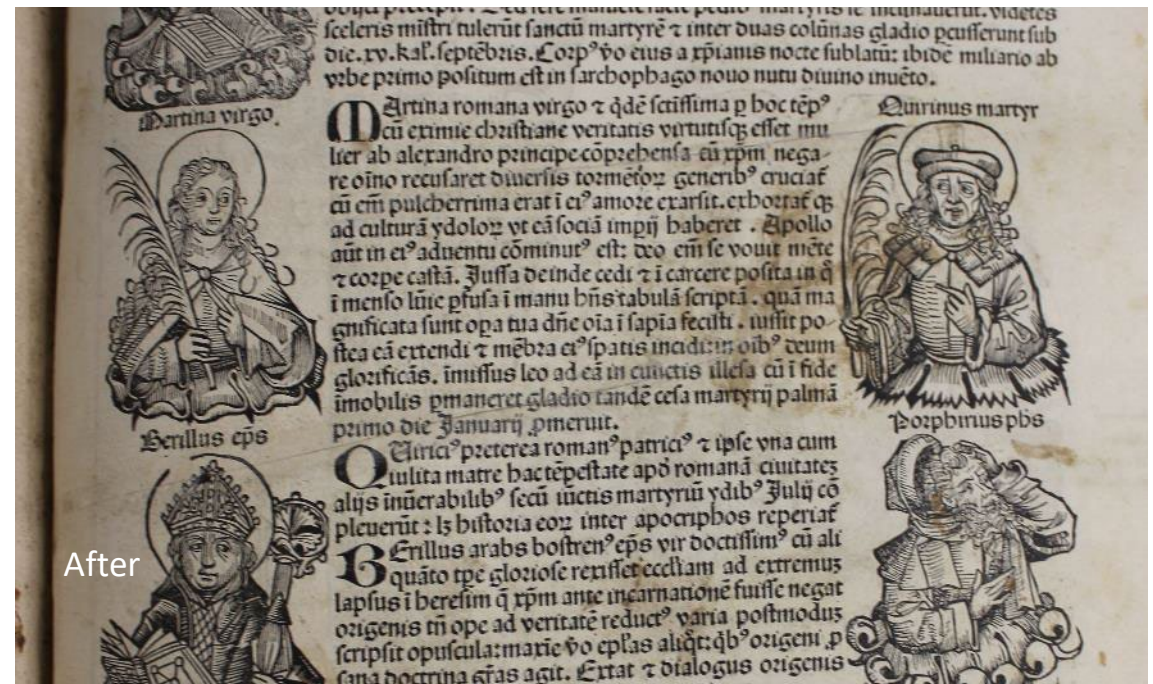 sceleris mīstri tulerūt sanctū martyrē ⁊ inter duas colūnas gladio ꝑcusserunt sub
die.xv.kal̄.septēbris.Corpꝰ ṽo eius a xp̄ianis nocte sublatū: ibidē miliario ab
vrbe primo positum est in sarchophago nouo nutu diuino inuēto.
Martina virgo.
MArtina romana virgo ⁊ q̇dē sctīssima ꝑ hoc tēpꝰ
cū eximie christiane veritatis virtutisqꝫ esset mu
lier ab alexandro principe cōprehensa cū xp̄m nega-
re oīno recusaret diuersis tormētoꝝ generibꝰ cruciat̄
cū em̄ pulcherrima erat ī eiꝰ amore exarsit. exhortat̄ qꝫ
ad culturā ydoloꝝ vt eā sociā impij haberet . Apollo
aūt in eiꝰ aduentu cōminutꝰ est: deo em̄ se vouit mēte
⁊ corpe castā. Jussa deinde cedi ⁊ ī carcere posita in q̄
ī menso lūīe ꝑfusa ī manu hn̄s tabulā scriptā . quā ma
gnificata sunt opa tua dn̄e oīa ī sapīa fecisti . iussit po-
stea eā extendi ⁊ mēbra eiꝰ spatis incidi: in oībꝰ deum
glorificās. īmissus leo ad eā in cunctis illesa cū ī fide
īmobilis ꝑmaneret gladio tandē cesa martyrij palmā
primo die Januarij ꝓmeruit.
Quirinus martyr
Berillus ep̄s
QUiriciꝰ preterea romanꝰ patriciꝰ ⁊ ipse vna cum
iulita matre hac tēpestate apđ romanā ciuitatez
alijs inūerabilibꝰ secū iūctis martyriū ydibꝰ Julij cō
pleuerūt: lꝫ historia eoꝝ inter apocriphos reperiat̄
BErillus arabs bostrenꝰ ep̄s vir doctissimꝰ cū ali
quāto tp̄e gloriose rexisset eccl̄iam ad extremuꝫ
lapsus ī heresim q̄ xp̄m ante incarnationē fuisse negat
origenis tn̄ ope ad veritatē reductꝰ varia postmoduꝫ
scripsit opuscula: maxīe ṽo ep̄las aliq̇t: q̇bꝰ origeni ꝓ
sana doctrina gr̄as agit. Extat ⁊ dialogus origenis
Porphirius ph̄s
After